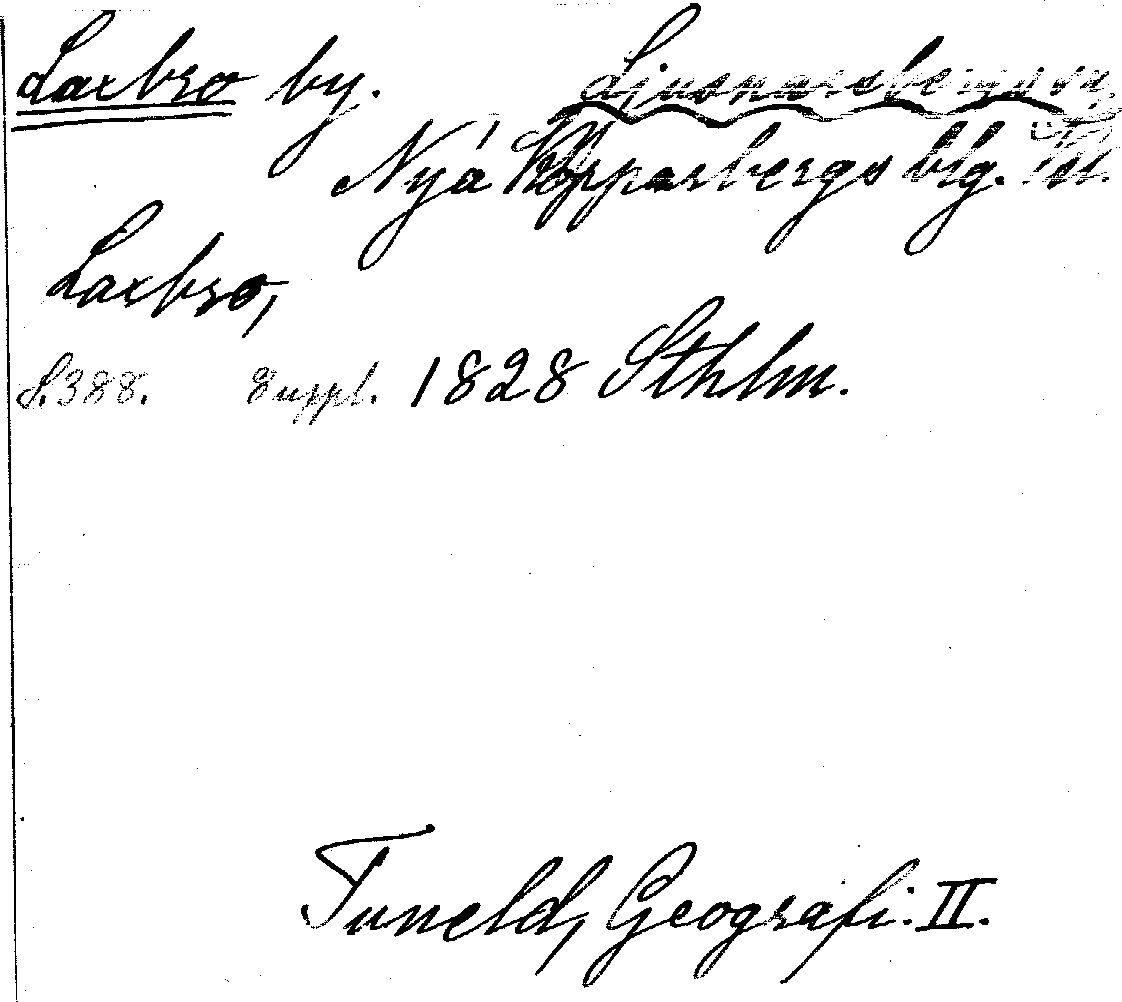 Laxbro by. Ljusnarsbergs sn,
Nya Kopparbergs blg.
Laxbro,
S. 388. Suppl. 1828 Sthlm.
Tuneld, Geografi. II.